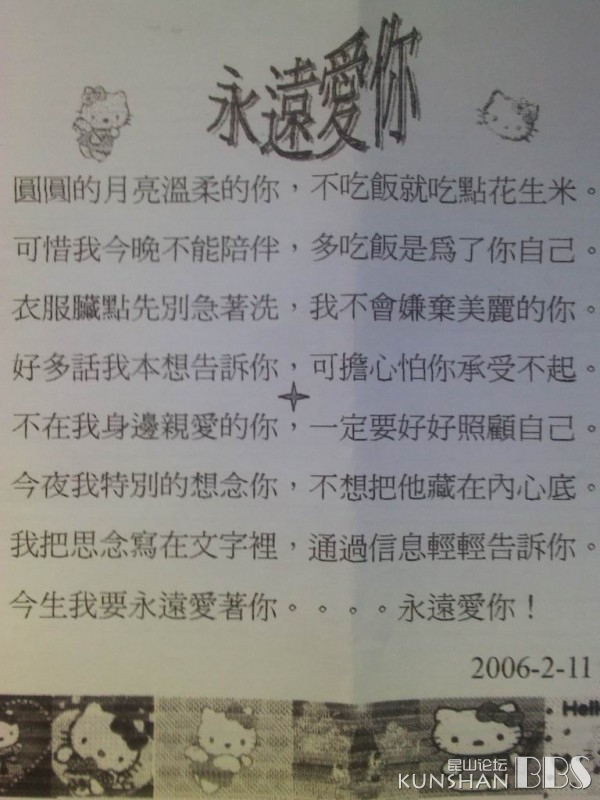 永遠愛你
圓圓的月亮溫柔的你，不吃飯就吃點花生米。
可惜我今晚不能陪伴，多吃飯是爲了你自己。
衣服臟點先別急著洗，我不會嫌棄美麗的你。
好多話我本想告訴你，可擔心怕你承受不起。
不在我身邊親愛的你，一定要好好照顧自己。
今夜我特別的想念你，不想把他藏在內心底。
我把思念寫在文字裡，通過信息輕輕告訴你。
今生我要永遠愛著你。。。。永遠愛你！
2006-2-11
Hell
昆山论坛
KUNSHAN BBS